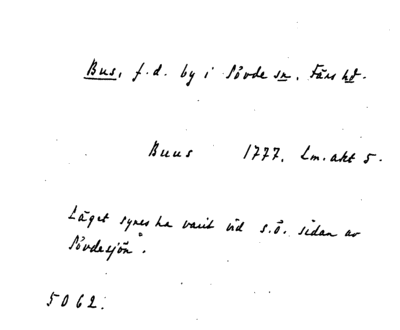 Bus, f.d. by i Sövde sn, Färs hd.
Buus 1777. Lm. akt 5.
Läget synes ha varit vid s.ö. sidan av
Sövdesjön.
5062.